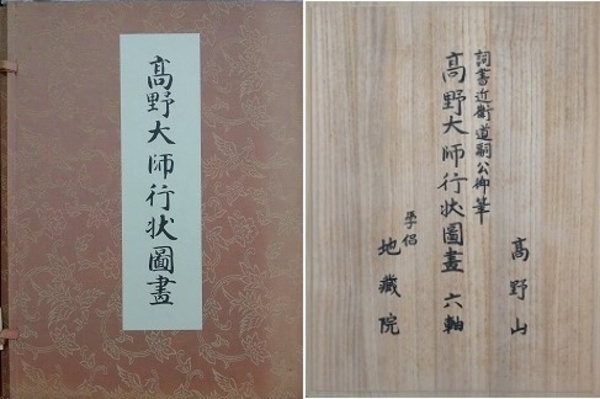 髙野大師行状圖畫
髙野山
詞書近衛道嗣公御筆
髙野大師行状圖畫 六軸
斈侶
地藏院